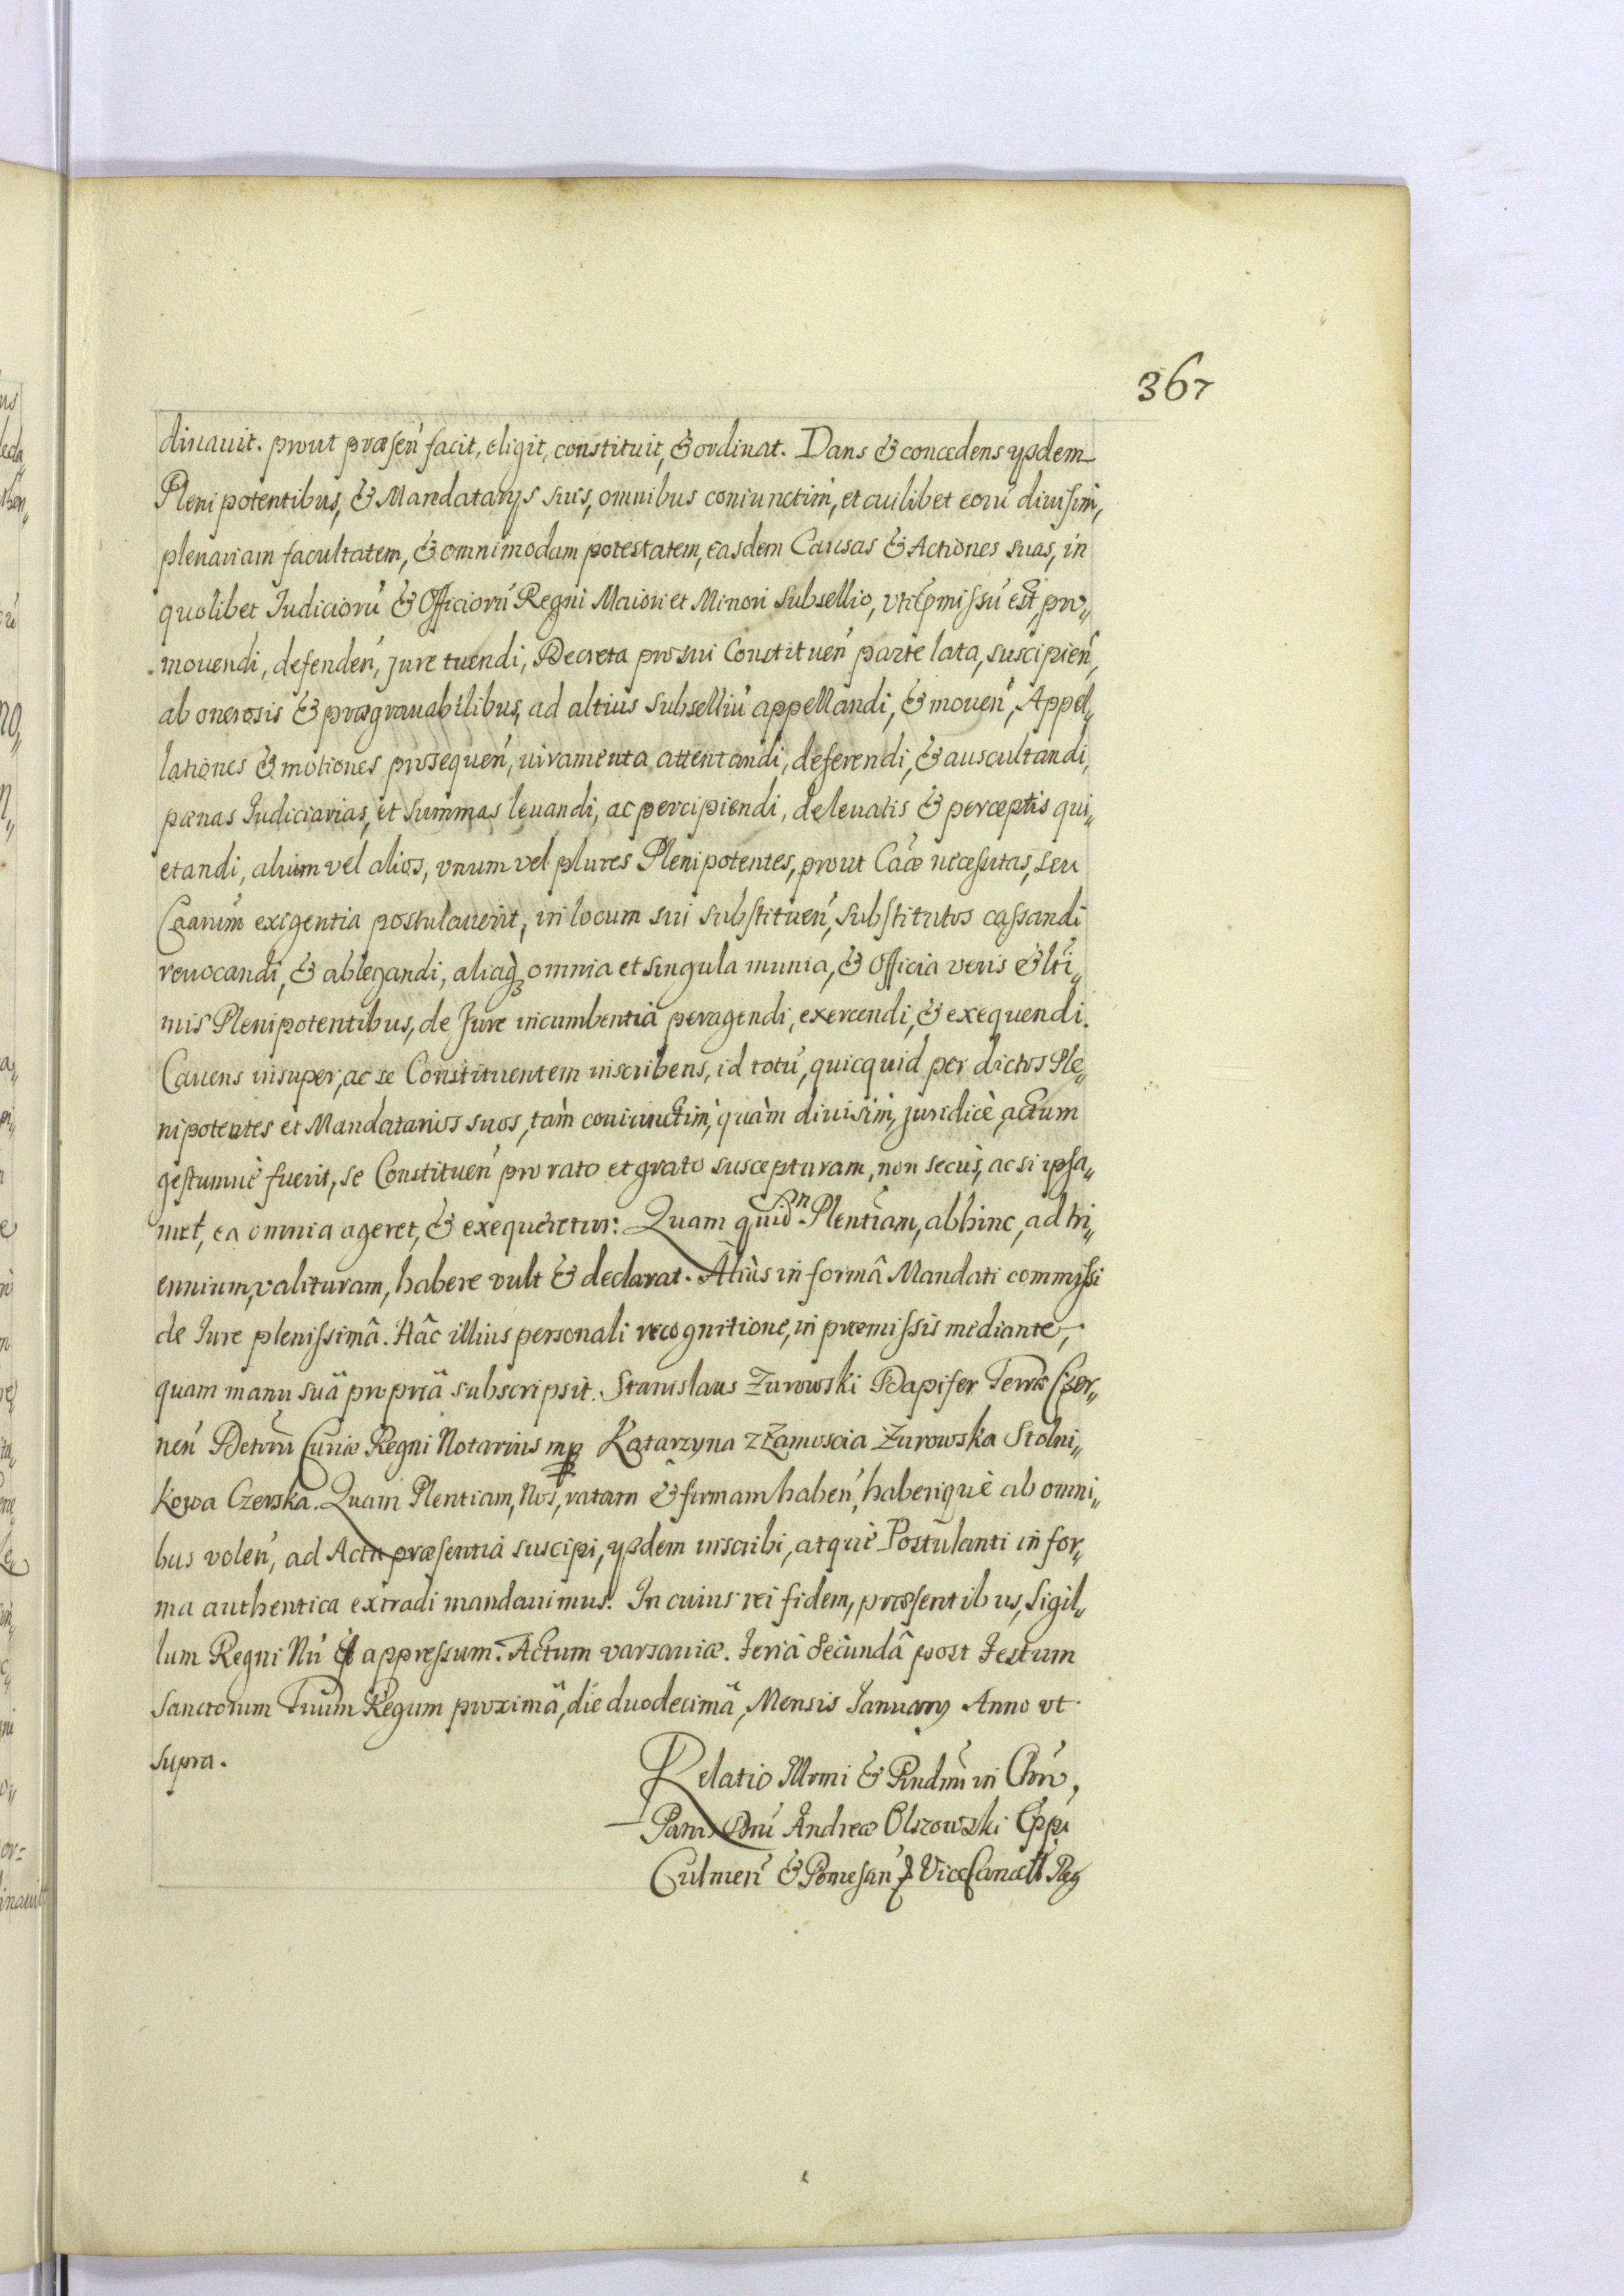 367
dinauit. prout præsen̄ facit, eligit, constituit, & ordinat. Dans & concedens ysdem
Plenipotentibus, & Mandatarys suis, omnibus coniunctim, et cuilibet eorū diuisim,
plenariam facultatem, & omnimodam potestatem, easdem Causas & Actiones suas, in
quolibet Iudiciorū & Officiorū Regni Maiori et Minori Subsellio, vti p̄missū est, pro„
mouendi, defenden̄, jure tuendi, Decreta pro sui Constituen̄ parte lata, suscipien̄,
ab onerosis & prægrauabilibus, ad altius Subselliū appellandi, & mouen̄, Appel„
lationes & motiones prosequen̄, iuramenta attentandi, deferendi, & auscultandi,
pœnas Iudiciarias, et summas leuandi, ac percipiendi, de leuatis & perceptis qui„
etandi, alium vel alios, vnum vel plures Plenipotentes, prout Cāæ necessitas, seu
Cāarum exigentia postulauerit, in locum sui substituen̄, substitutos cassandi
reuocandi, & ablegandi, aliaq₃ omnia et singula munia, & Officia veris & lt̄i„
mis Plenipotentibus, de Jure incumbentiā peragendi, exercendi, & exequendi.
Cauens insuper, ac se Constituentem inscribens, id totū, quicquid per dictos Ple„
nipotentes et Mandatarios suos, tàm coniunctim, quàm diuisim, juridicè, actum
gestumuè fuerit, se Constituen̄ pro rato et grato suscepturam, non secus, ac si ipsa„
met, ea omnia ageret, & exequeretur: Quam quid̄n Plentiam, abhinc, ad tri„
ennium, valituram, habere vult & declarat. Aliùs in formâ Mandati commissi
de Iure plenissimâ. Hâc illius personali recognitione, in præmissis mediante,
quam manu suâ propriâ subscripsit. Stanislaus Żurowski Dapifer Terræ Czer„
nen̄ Detrūū Curiæ Regni Notarius mp Katarzyna z Zamoscia Żurowska Stolni„
kowa Czerska. Quam Plentiam, Nos, ratam & firmam haben̄, haberiquè ab omni„
bus volen̄, ad Acta præsentia suscipi, ysdem inscribi, atquè Postulanti in for„
ma authentica extradi mandauimus. In cuius rei fidem, præsentibus, Sigil„
lum Regni Nr̄i est appressum. Actum varsauiæ. feriâ secundâ post festum
Sanctorum Trium Regum proximâ, die duodecimâ, Mensis Ianuary Anno vt
supra.
Relatio Illrmi & Rndmī in Chrō,
Patris Dn̄i Andreæ Olszowski Ep̄pi
Culmen̄ & Pomesan̄ ViceCancell Reg